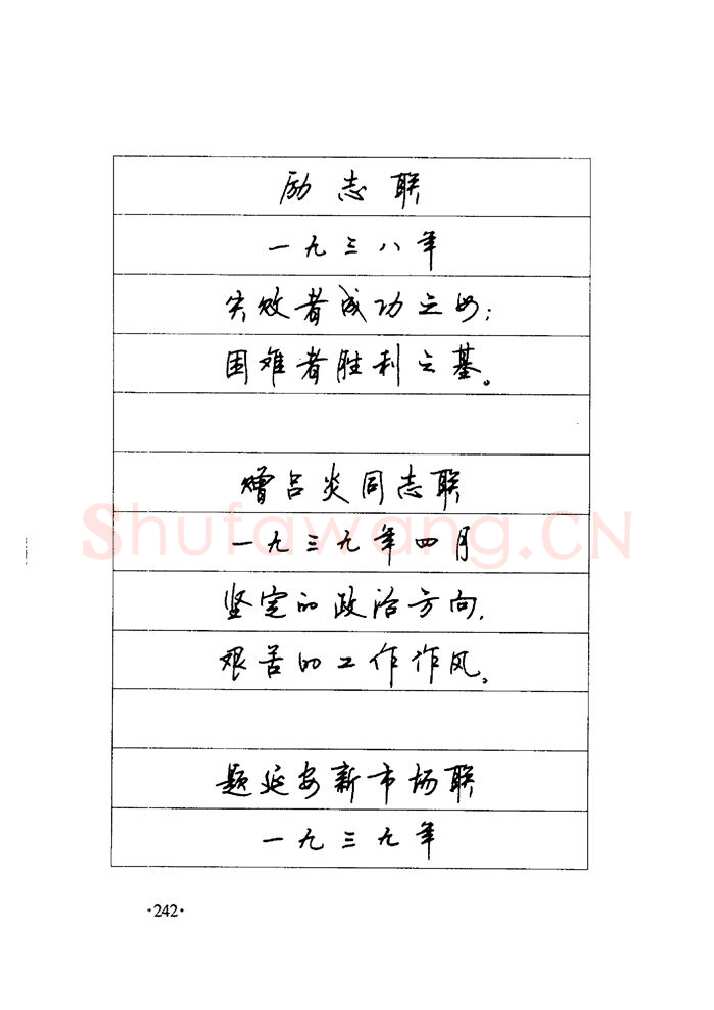 励志联
一九三八年
失败者成功之母；
困难者胜利之基。
赠吕炎同志联
Shufawang.CN
一九三九年四月
坚定的政治方向，
艰苦的工作作风。
题延安新市场联
一九三九年
·242·